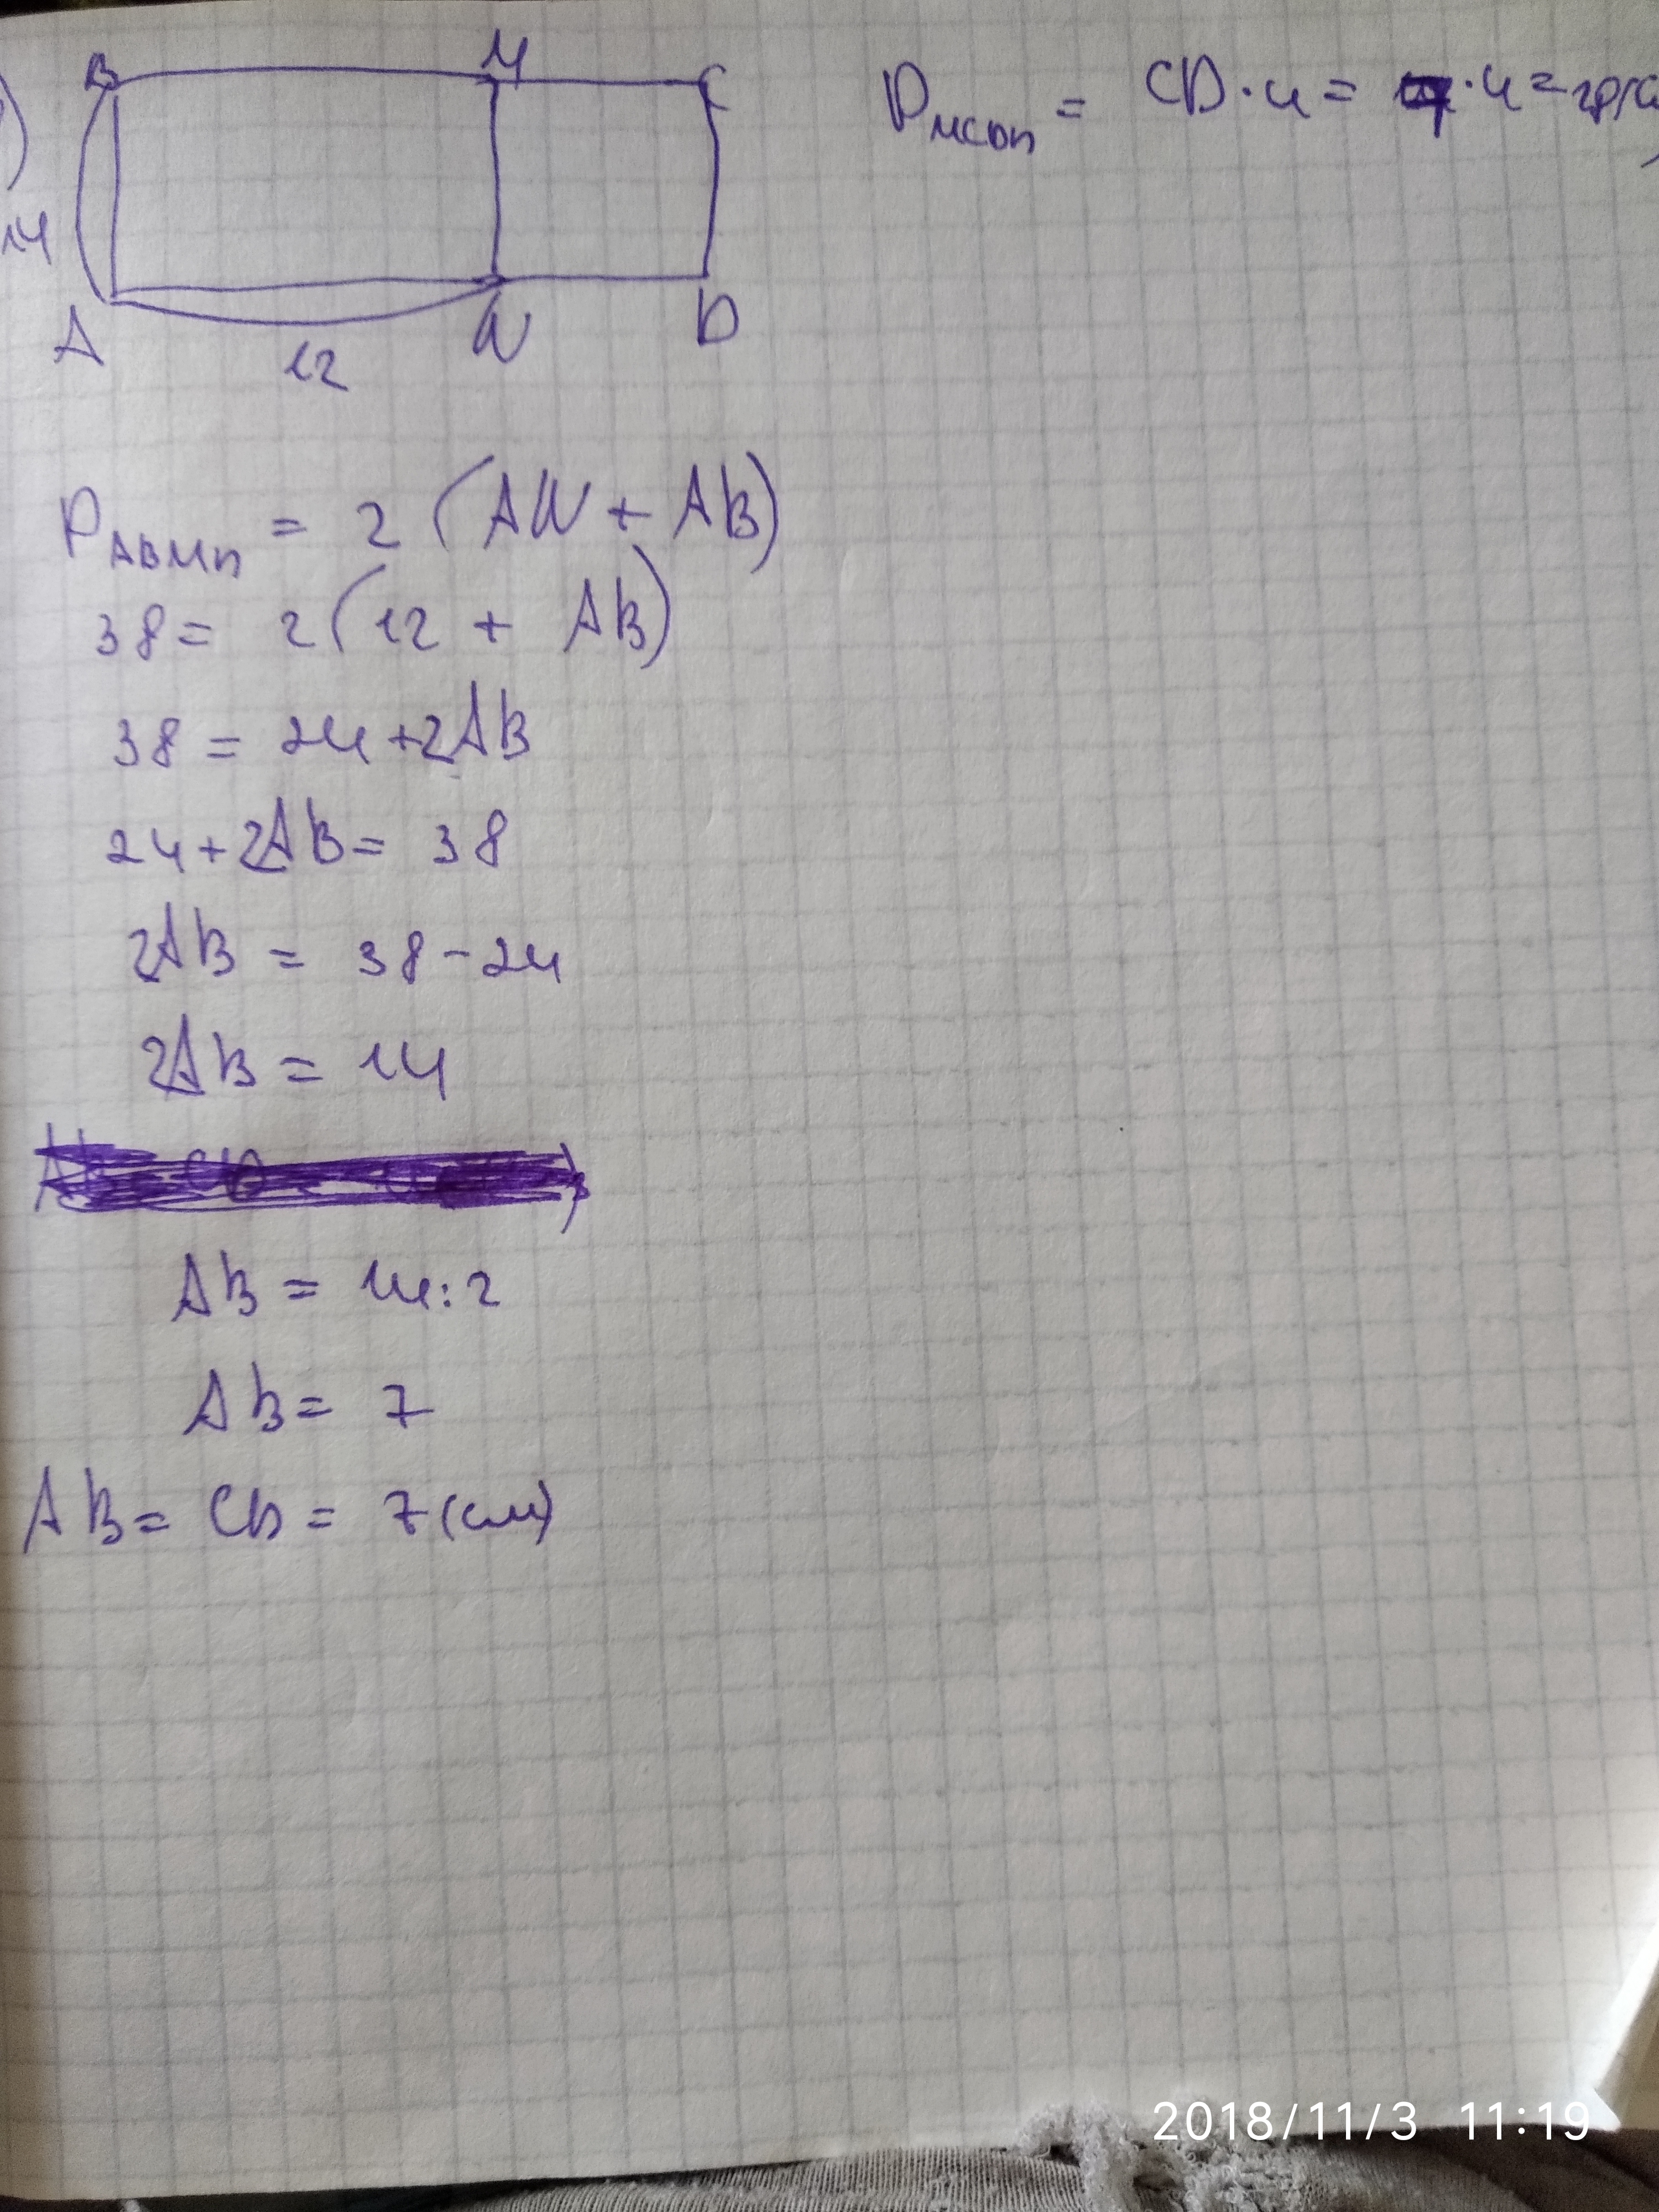 B M C
P MCDN = CD · 4 = 7 · 4 =
14
A N D
12
P ABMN = 2 (AN + AB)
38 = 2 (12 + AB)
38 = 24 + 2AB
24 + 2AB = 38
2AB = 38 - 24
2AB = 14
AB = 14 : 2
AB = 7
AB = CD = 7 (см)
2018/11/3 11:19